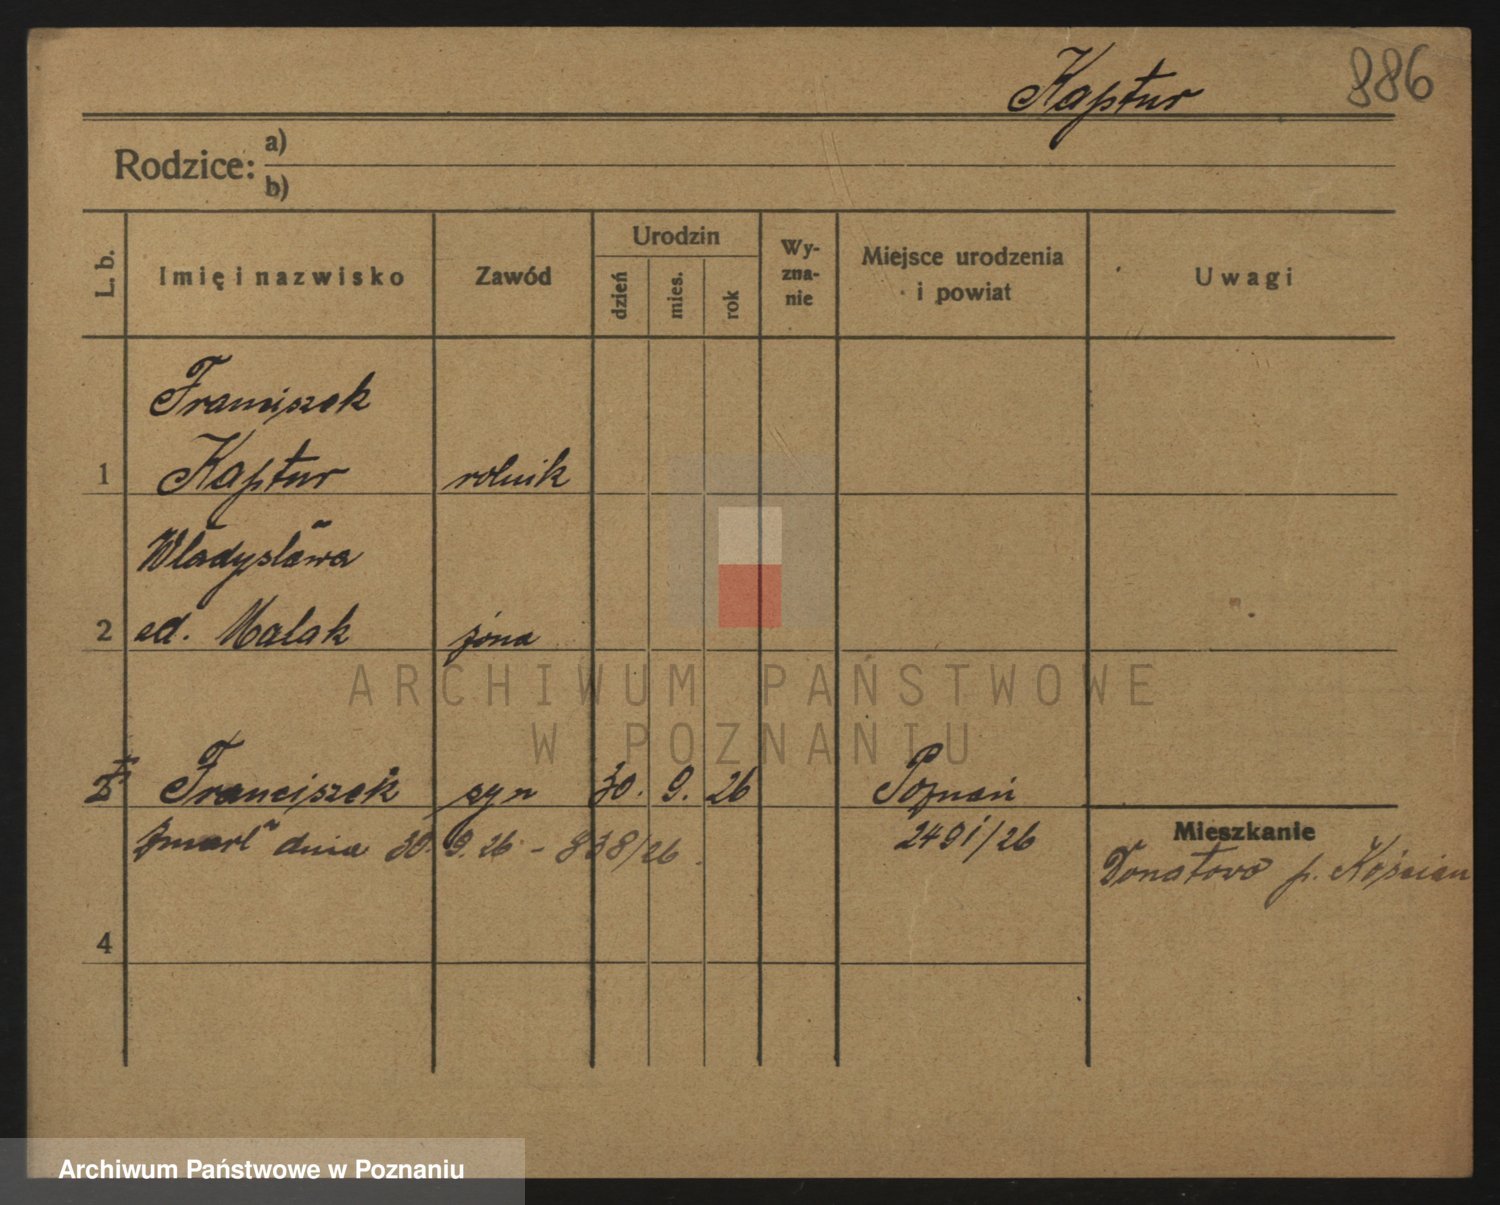 Kaptur 886
Rodzice: a)
b)
L. b. Imię i nazwisko Zawód Urodzin dzień mies. rok Wy-zna-nie Miejsce urodzenia i powiat Uwagi
Franciszek
1 Kaptur rolnik
Władysława
2 ed. Malak żona
ARCHIWUM PAŃSTWOWE
W POZNANIU
Franciszek syn 30. 9. 26 Poznań
Mieszkanie
zmarł dnia 30. 9. 26 - 838/26. 2491/26
Donatowo p. Kościan
4
Archiwum Państwowe w Poznaniu